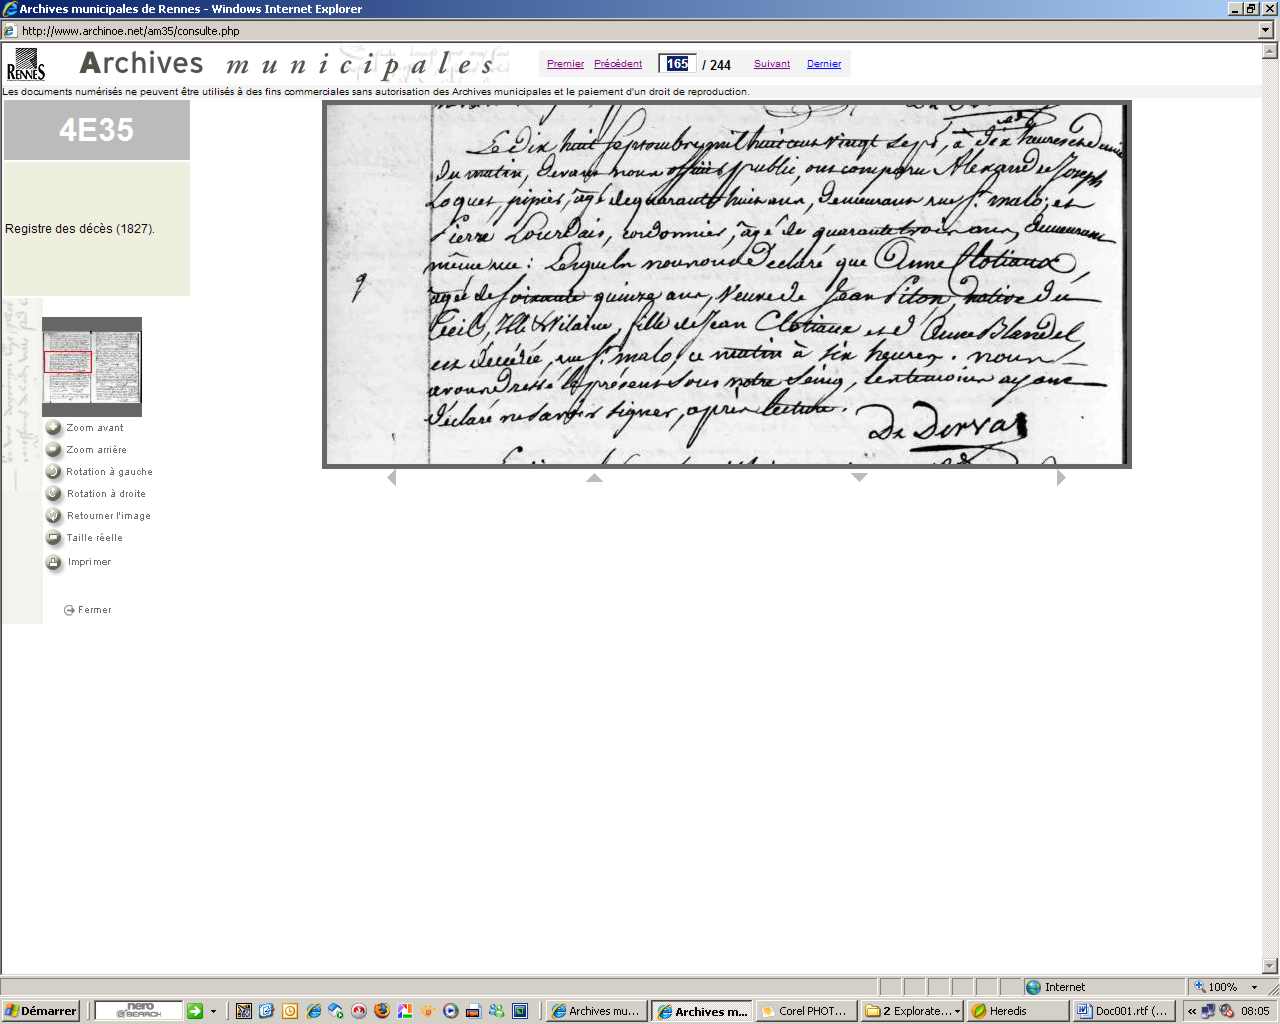 Archives municipales de Rennes - Windows Internet Explorer
http://www.archinoe.net/am35/consulte.php
RENNES
Archives municipales
Premier Précédent 165 / 244 Suivant Dernier
Les documents numérisés ne peuvent être utilisés à des fins commerciales sans autorisation des Archives municipales et le paiement d'un droit de reproduction.
4E35
Registre des décès (1827).
Zoom avant
Zoom arrière
Rotation à gauche
Rotation à droite
Retourner l'image
Taille réelle
Imprimer
Fermer
Le dix huit Septembre mil huit cent vingt Sept, à dix heures et demie
du matin, devant nous officier public, ont comparu Alexandre Joseph
Loquet, âgé de quarante huit ans, demeurant rue St. malo; et
Pierre Lourdais, cordonnier, âgé de quarante trois ans, demeurant
même rue: Lesquels nous ont déclaré que Anne Clotiaux,
9
âgée de soixante quinze ans, Veuve de Jean Piton, native du
Teil, Ille & Vilaine, fille de Jean Clotiaux et d'Anne Blandel
est décédée, rue St. malo, ce matin à six heures. nous
avons dressé le présent Sous notre Seing, les témoins ayant
déclaré ne savoir signer, après lecture.
De Derval
Internet
100%
Démarrer
nero
SEARCH
Archives mu...
Archives m...
Corel PHOT...
2 Explorate...
Heredis
Doc001.rtf (...
08:05